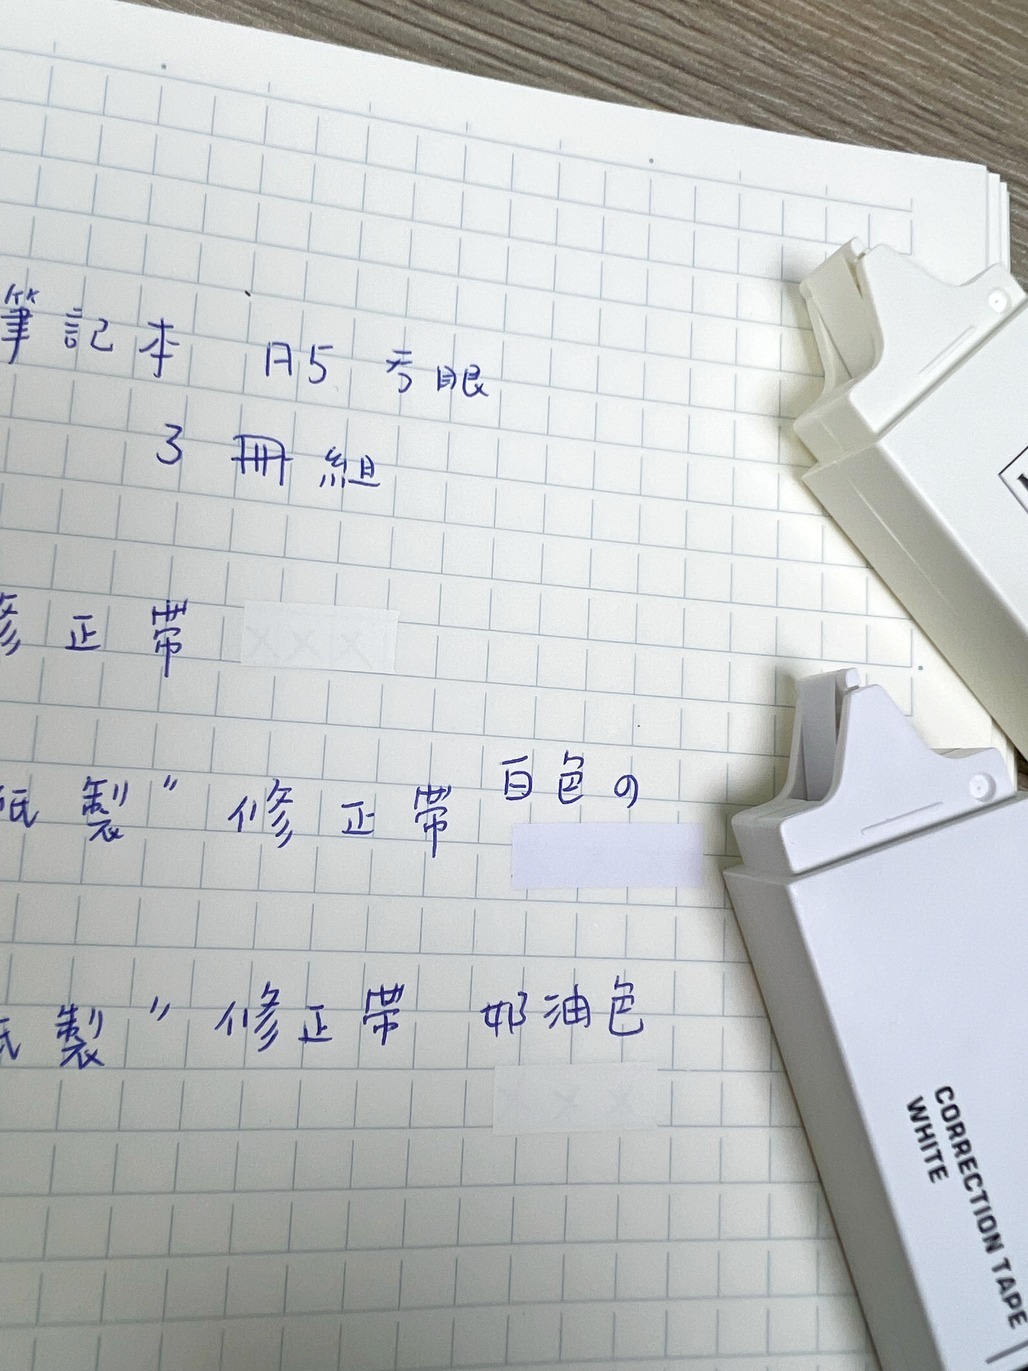 筆記本 A5 方眼
3 冊組
修正帶 xxx
紙製" 修正帶 白色の
紙製" 修正帶 奶油色
xx
CORRECTION TAPE
WHITE